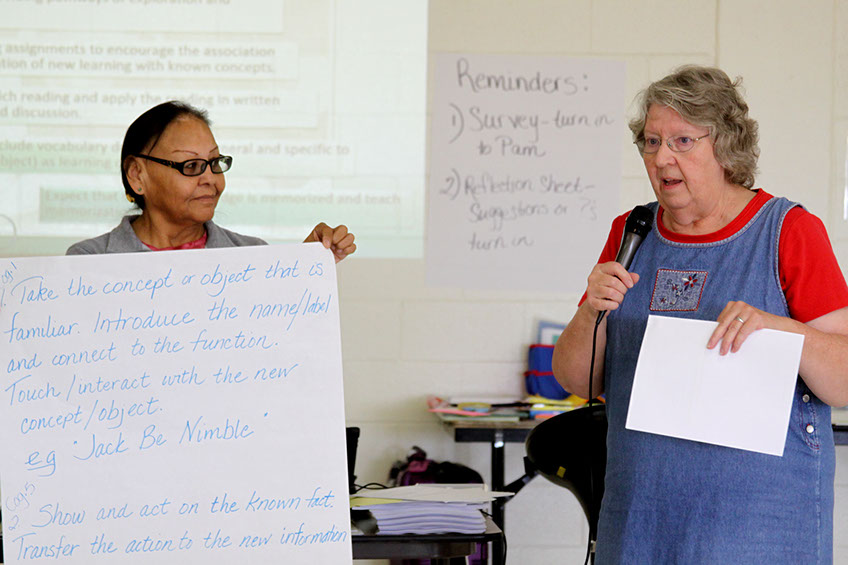 g assignments to encourage the association
tion of new learning with known concepts.
ich reading and apply the reading in written
d discussion.
clude vocabulary
eral and specific to
object) as learning
Expect that
ge is memorized and teach
Reminders:
1) Survey-turn in
to Pam
2) Reflection Sheet-
Suggestions or ?'s
turn in
1. Take the concept or object that is
familiar. Introduce the name/label
and connect to the function.
Touch/interact with the new
concept/object.
eg "Jack Be Nimble"
Cog.5
2 Show and act on the known fact.
Transfer the action to the new information